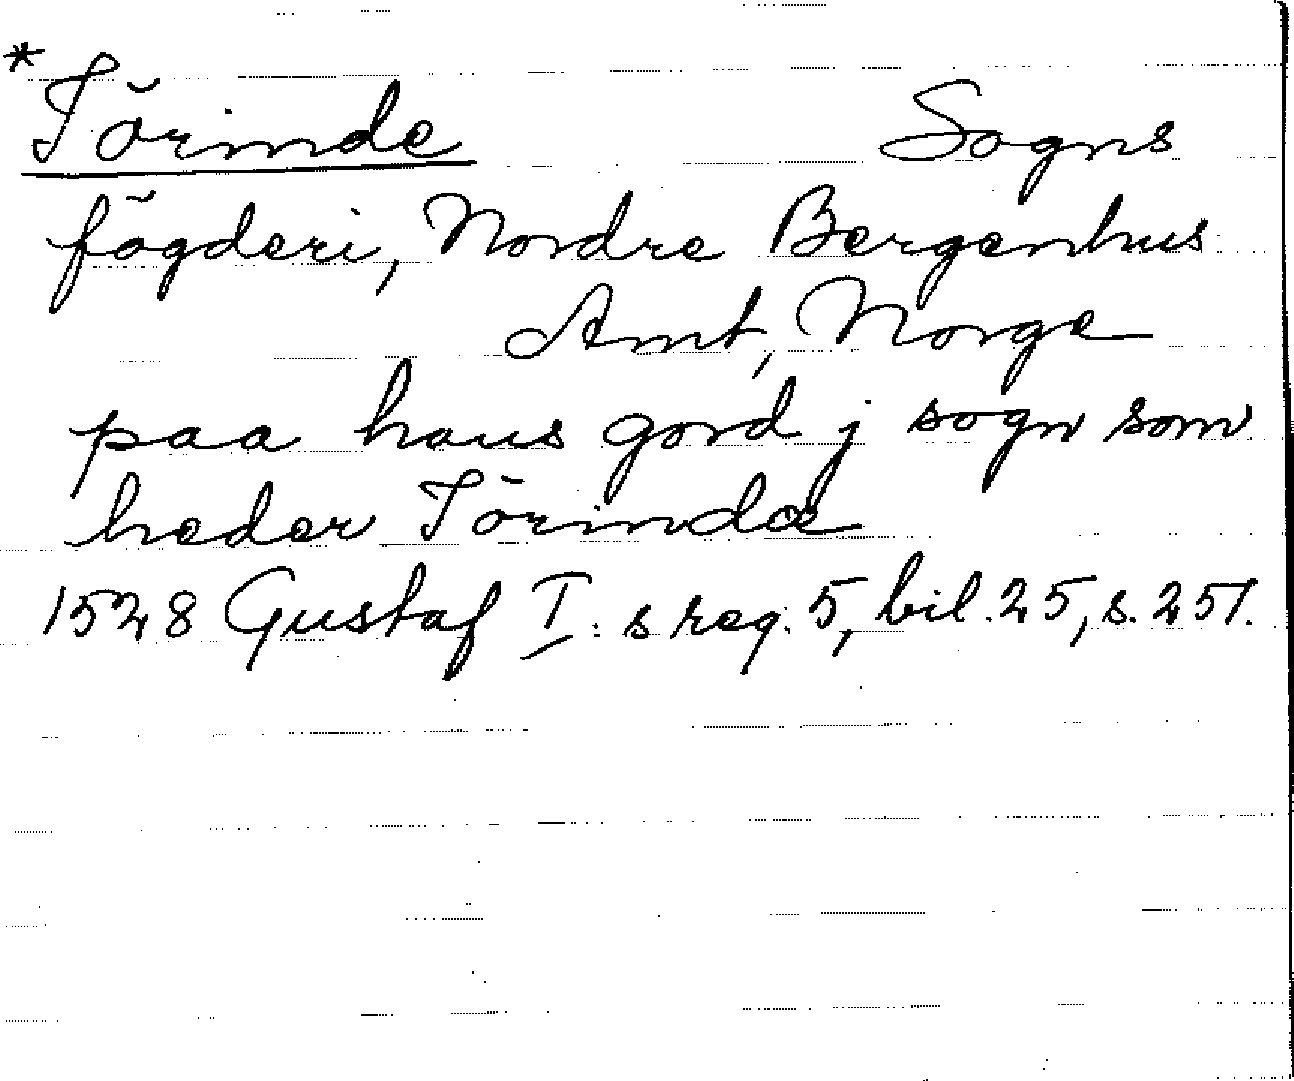 *Törinde Sogns
fögderi, Nordre Bergenhus
Amt, Norge
paa hans gord j sogn som
heder Törindæ
1528 Gustaf I: s reg. 5, bil. 25, s. 251.